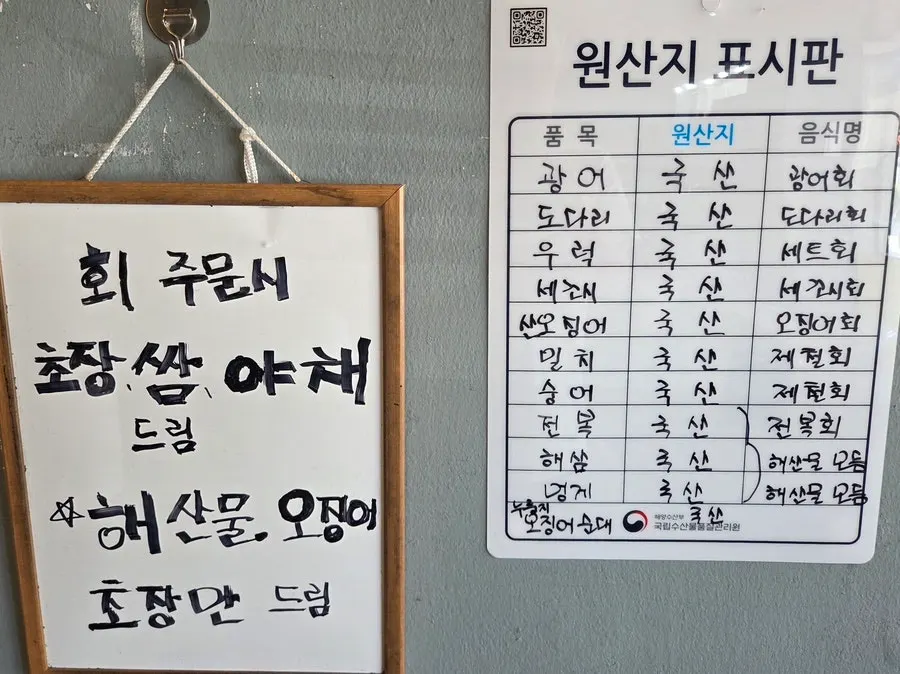 회 주문시
초장, 쌈, 야채
드림
☆ 해산물. 오징어
초장만 드림
원산지 표시판
품 목 원산지 음식명
광 어 국 산 광어회
도다리 국 산 도다리회
우 럭 국 산 세트회
세꼬시 국 산 세꼬시회
산오징어 국 산 오징어회
밀 치 국 산 제철회
숭 어 국 산 제철회
전 복 국 산 전복회
해 삼 국 산 해산물 모듬
멍게 국 산 해산물 모듬
오징어순대 국산
해양수산부
국립수산물품질관리원